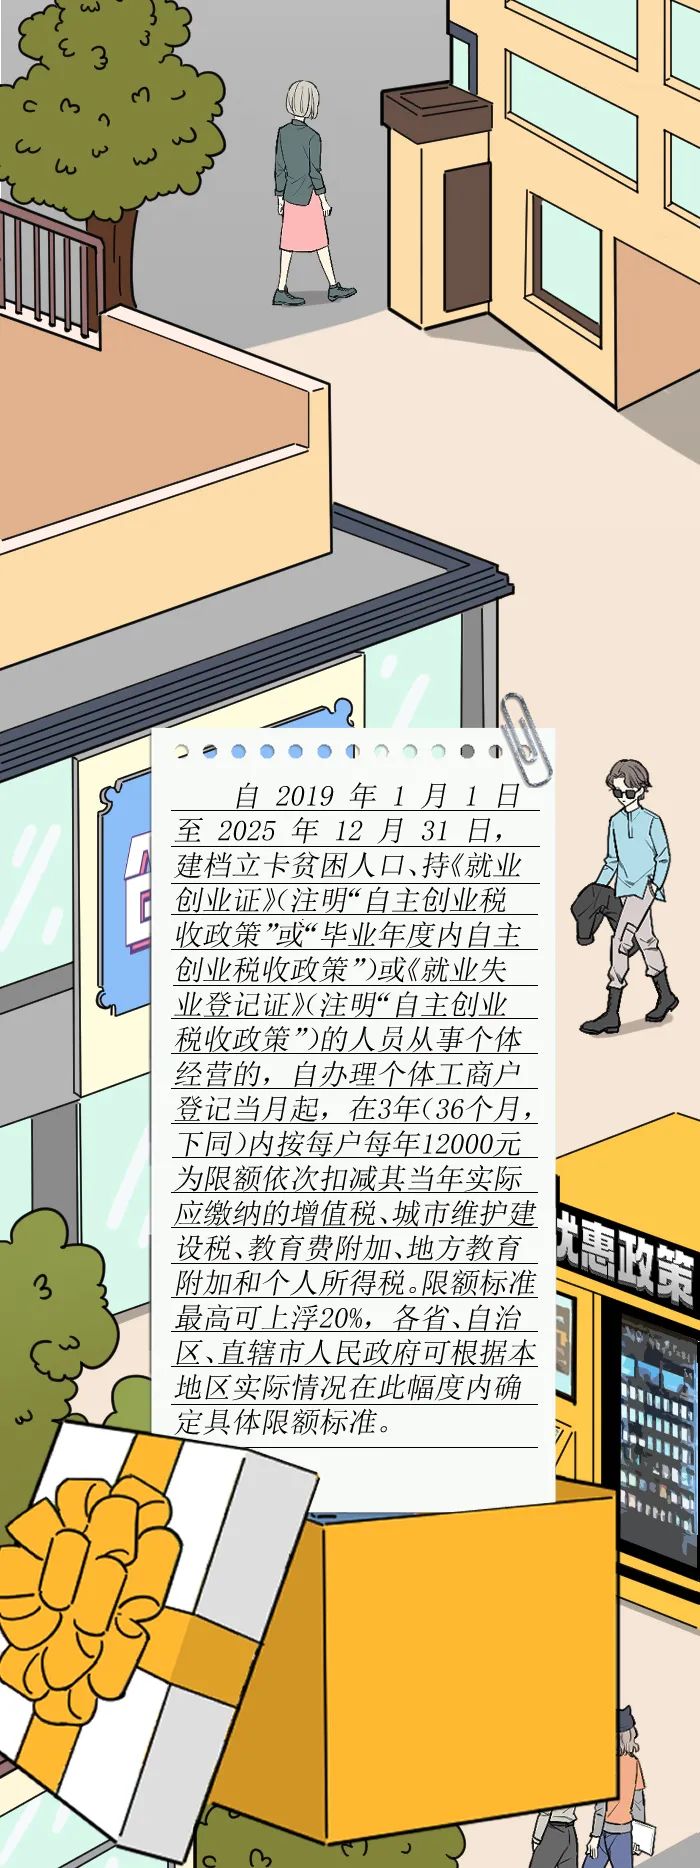 自 2019 年 1 月 1 日
至 2025 年 12 月 31 日，
建档立卡贫困人口、持《就业
创业证》（注明“自主创业税
收政策”或“毕业年度内自主
创业税收政策”）或《就业失
业登记证》（注明“自主创业
税收政策”）的人员从事个体
经营的，自办理个体工商户
登记当月起，在3年（36个月，
下同）内按每户每年12000元
为限额依次扣减其当年实际
应缴纳的增值税、城市维护建
设税、教育费附加、地方教育
附加和个人所得税。限额标准
最高可上浮20%，各省、自治
区、直辖市人民政府可根据本
地区实际情况在此幅度内确
定具体限额标准。
优惠政策